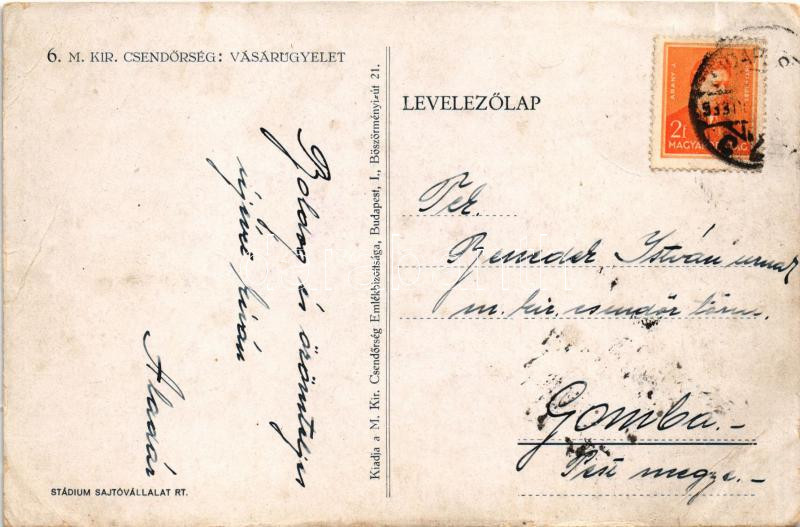 6. M. KIR. CSENDŐRSÉG: VÁSÁRÜGYELET
Boldog és örömteljes
újévet kíván
Aladár
STÁDIUM SAJTÓVÁLLALAT RT.
Kiadja a M. Kir. Csendőrség Emlékbizottsága, Budapest, I., Böszörményi-út 21.
LEVELEZŐLAP
ARANY J.
2f
MAGYAR
Tek.
Benedek István urnak
m. kir. csendőr törm.
Gomba.-
Pest megye.-